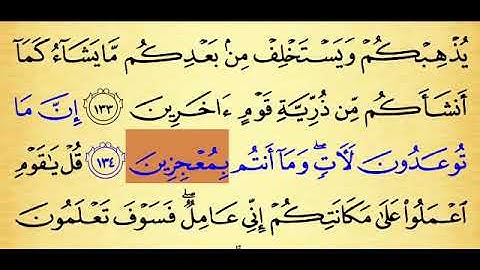 يُذْهِبْكُمْ وَيَسْتَخْلِفْ مِنۢ بَعْدِكُم مَّا يَشَآءُ كَمَآ
أَنشَأَكُم مِّن ذُرِّيَّةِ قَوْمٍ ءَاخَرِينَ ١٣٣ إِنَّ مَا
تُوعَدُونَ لَـَٔاتٍ ۖ وَمَآ أَنتُم بِمُعْجِزِينَ ١٣٤ قُلْ يَـٰقَوْمِ
ٱعْمَلُوا۟ عَلَىٰ مَكَانَتِكُمْ إِنِّى عَامِلٌ ۖ فَسَوْفَ تَعْلَمُونَ